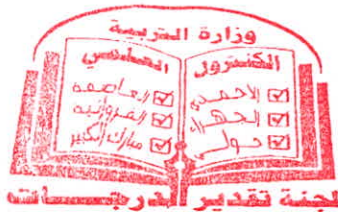 وزارة التربية
الكنترول العلمي
الاحمدي العاصمة
الجهراء الفروانية
حولي مبارك الكبير
لجنة تقدير الدرجات